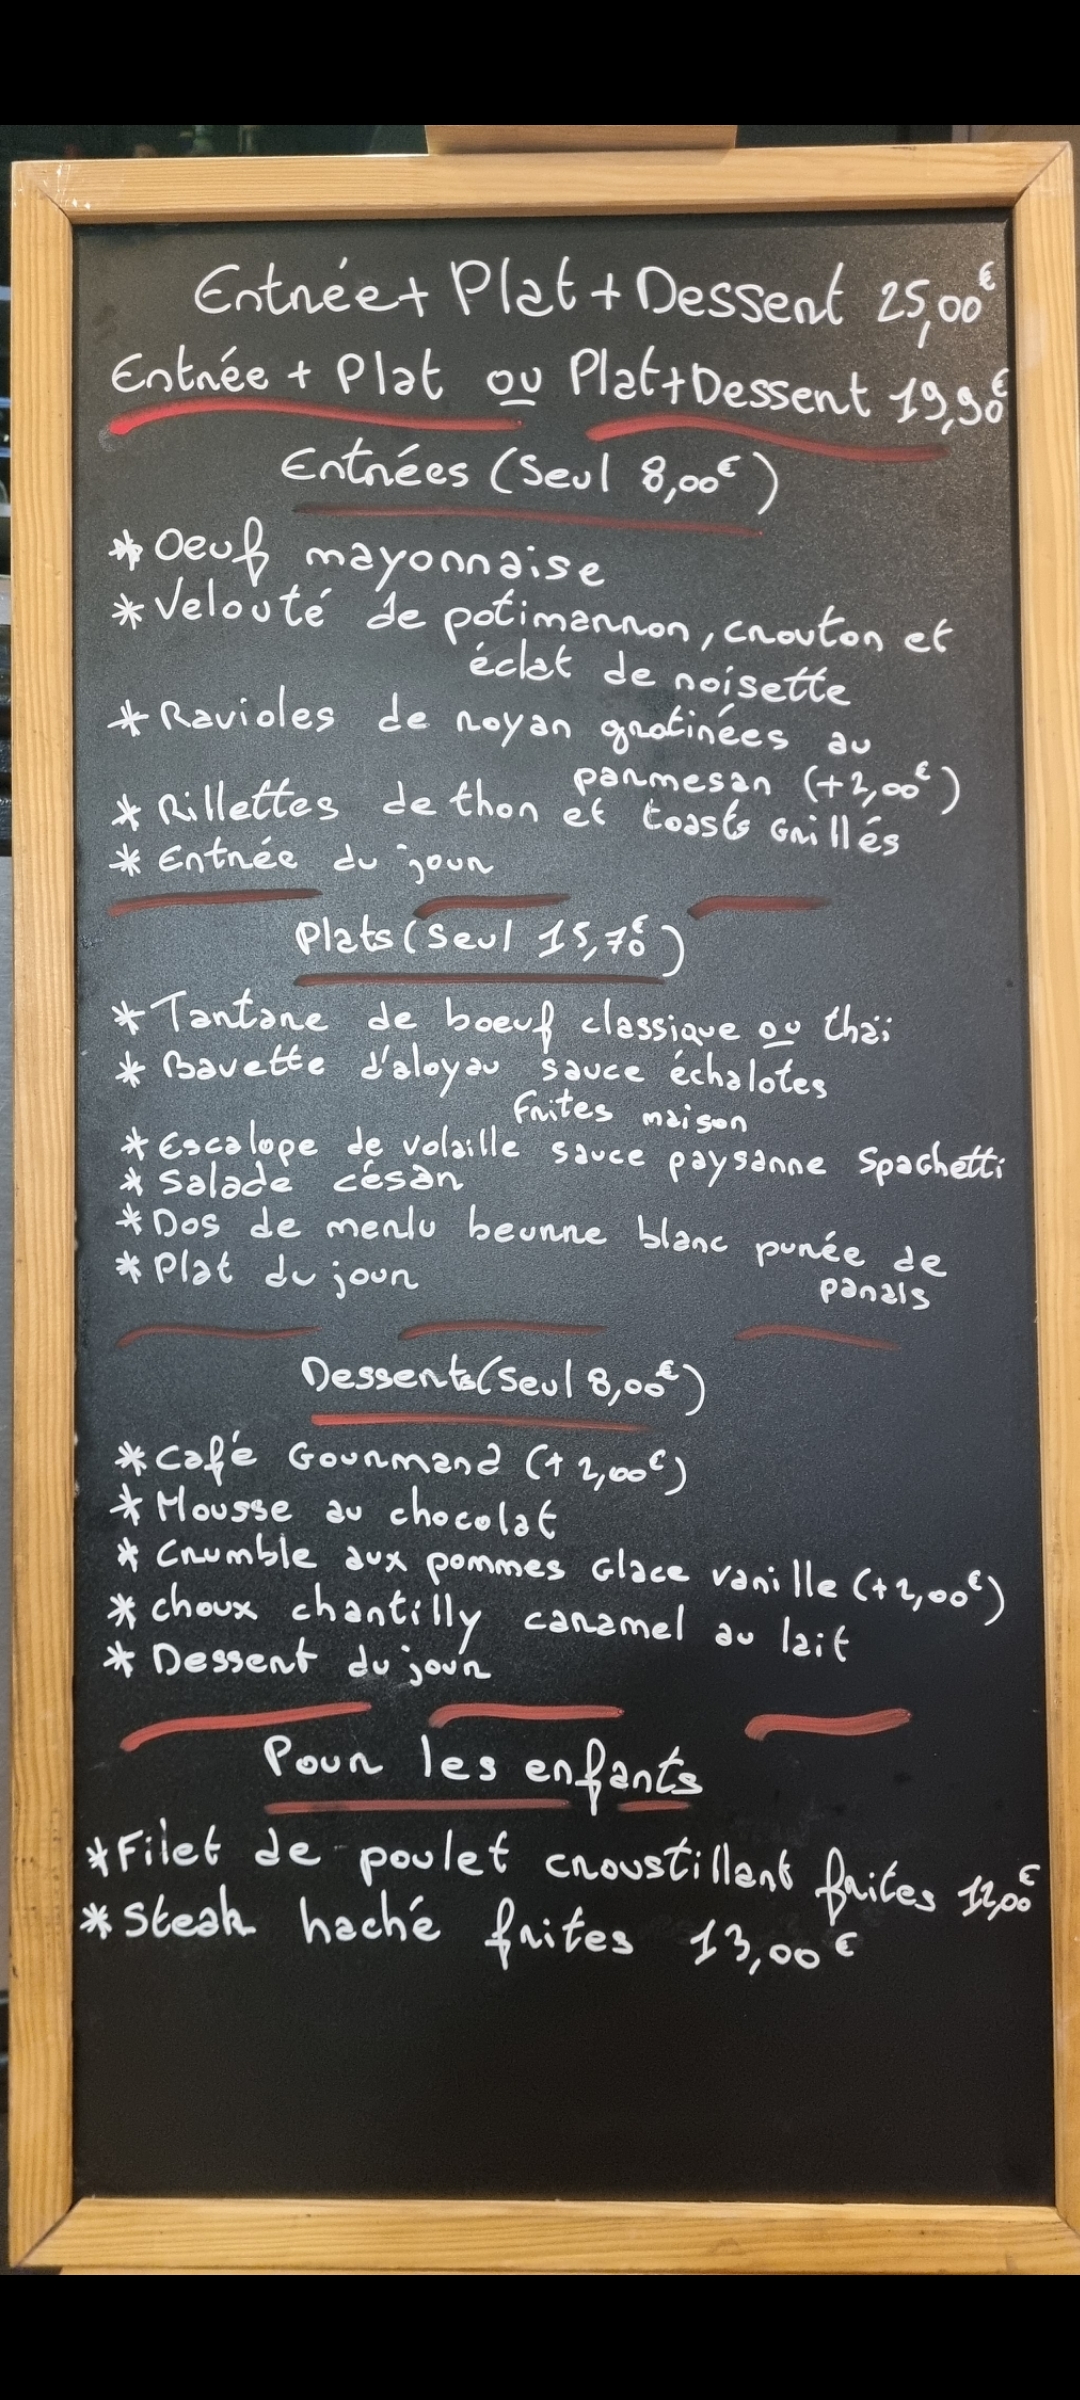 Entrée + Plat + Dessert 25,00€
Entrée + Plat ou Plat + Dessert 19,90€
Entrées (Seul 8,00€)
* Oeuf mayonnaise
* Velouté de potimarron, crouton et
éclat de noisette
* Ravioles de royan gratinées au
parmesan (+2,00€)
* Rillettes de thon et toasts Grillés
* Entrée du jour
Plats (Seul 15,70€)
* Tartare de boeuf classique ou thaï
* Bavette d'aloyau sauce échalotes
frites maison
* Escalope de volaille sauce paysanne Spaghetti
* Salade césar
* Dos de merlu beurre blanc purée de
panais
* Plat du jour
Desserts (Seul 8,00€)
* Café Gourmand (+2,00€)
* Mousse au chocolat
* Crumble aux pommes Glace vanille (+2,00€)
* Choux chantilly caramel au lait
* Dessert du jour
Pour les enfants
* Filet de poulet croustillant frites 12,00€
* Steak haché frites 13,00€